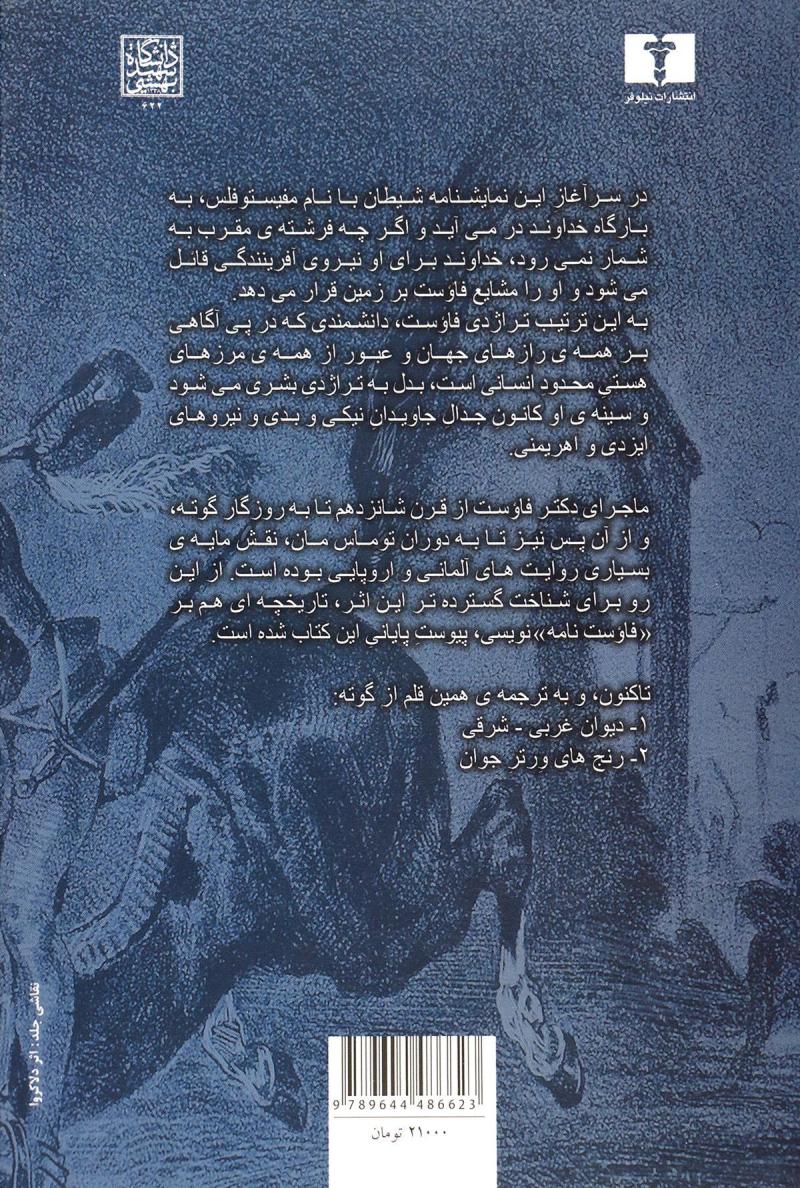 انتشارات نیلوفر
دانشگاه
شهید
بهشتی
۶۲۲
در سرآغاز این نمایشنامه شیطان با نام مفیستوفلس، به
بارگاه خداوند در می آید و اگر چه فرشته ی مقرب به
شمار نمی رود، خداوند برای او نیروی آفرینندگی قائل
می شود و او را مشایع فاؤست بر زمین قرار می دهد.
به این ترتیب تراژدی فاؤست، دانشمندی که در پی آگاهی
بر همه ی رازهای جهان و عبور از همه ی مرزهای
هستی محدود انسانی است، بدل به تراژدی بشری می شود
و سینه ی او کانون جدال جاویدان نیکی و بدی و نیروهای
ایزدی و اهریمنی.
ماجرای دکتر فاؤست از قرن شانزدهم تا به روزگار گوته،
و از آن پس نیز تا به دوران توماس مان، نقش مایه ی
بسیاری روایت های آلمانی و اروپایی بوده است. از این
رو برای شناخت گسترده تر این اثر، تاریخچه ای هم بر
«فاؤست نامه»نویسی، پیوستِ پایانی این کتاب شده است.
تاکنون، و به ترجمه ی همین قلم از گوته:
۱- دیوان غربی - شرقی
۲- رنج های ورترِ جوان
نقاشی جلد: اثر دلاکروا
9 789644 486623
۲۱۰۰۰ تومان